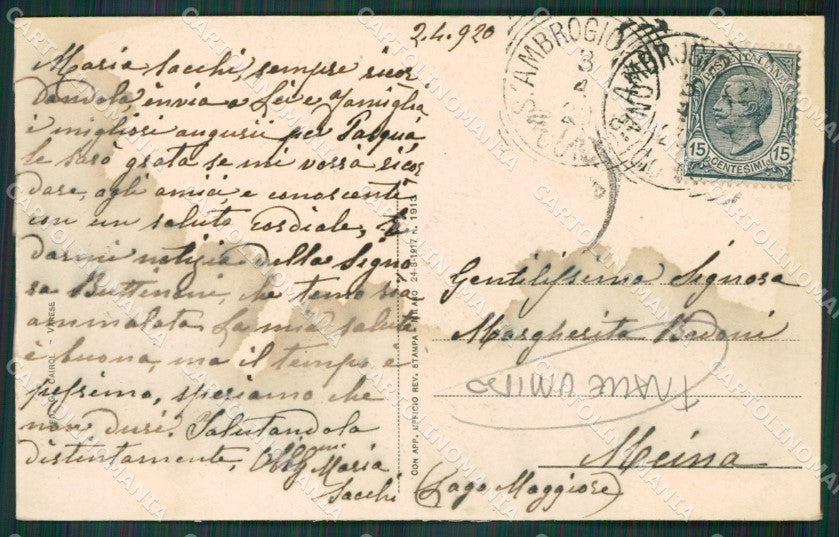 2.4.920
Maria Sacchi, sempre ricor
dandola invia a Lei e famiglia
i migliori augurii per Pasqua
le sarò grata se mi vorrà ricor
dare, agli amici e conoscenti
con un saluto cordiale, e
darmi notizia della Signo
ra Buttinoni, che temo sia
ammalata. La mia salute
è buona, ma il tempo è
pessimo, speriamo che
non duri. Salutandola
distintamente, Obbgma Maria
Sacchi
CAIROLI - VARESE
CON APP. UFFICIO REV. STAMPA MILANO 24-8-1917 N. 1913
S. AMBROGIO
3 4
S. AMBROGIO
POSTE ITALIANE
15 CENTESIMI 15
Gentilissima Signora
Margherita Bedoni
TRACCE UMIDO
Meina
(Lago Maggiore)
CARTOLINOMANIA